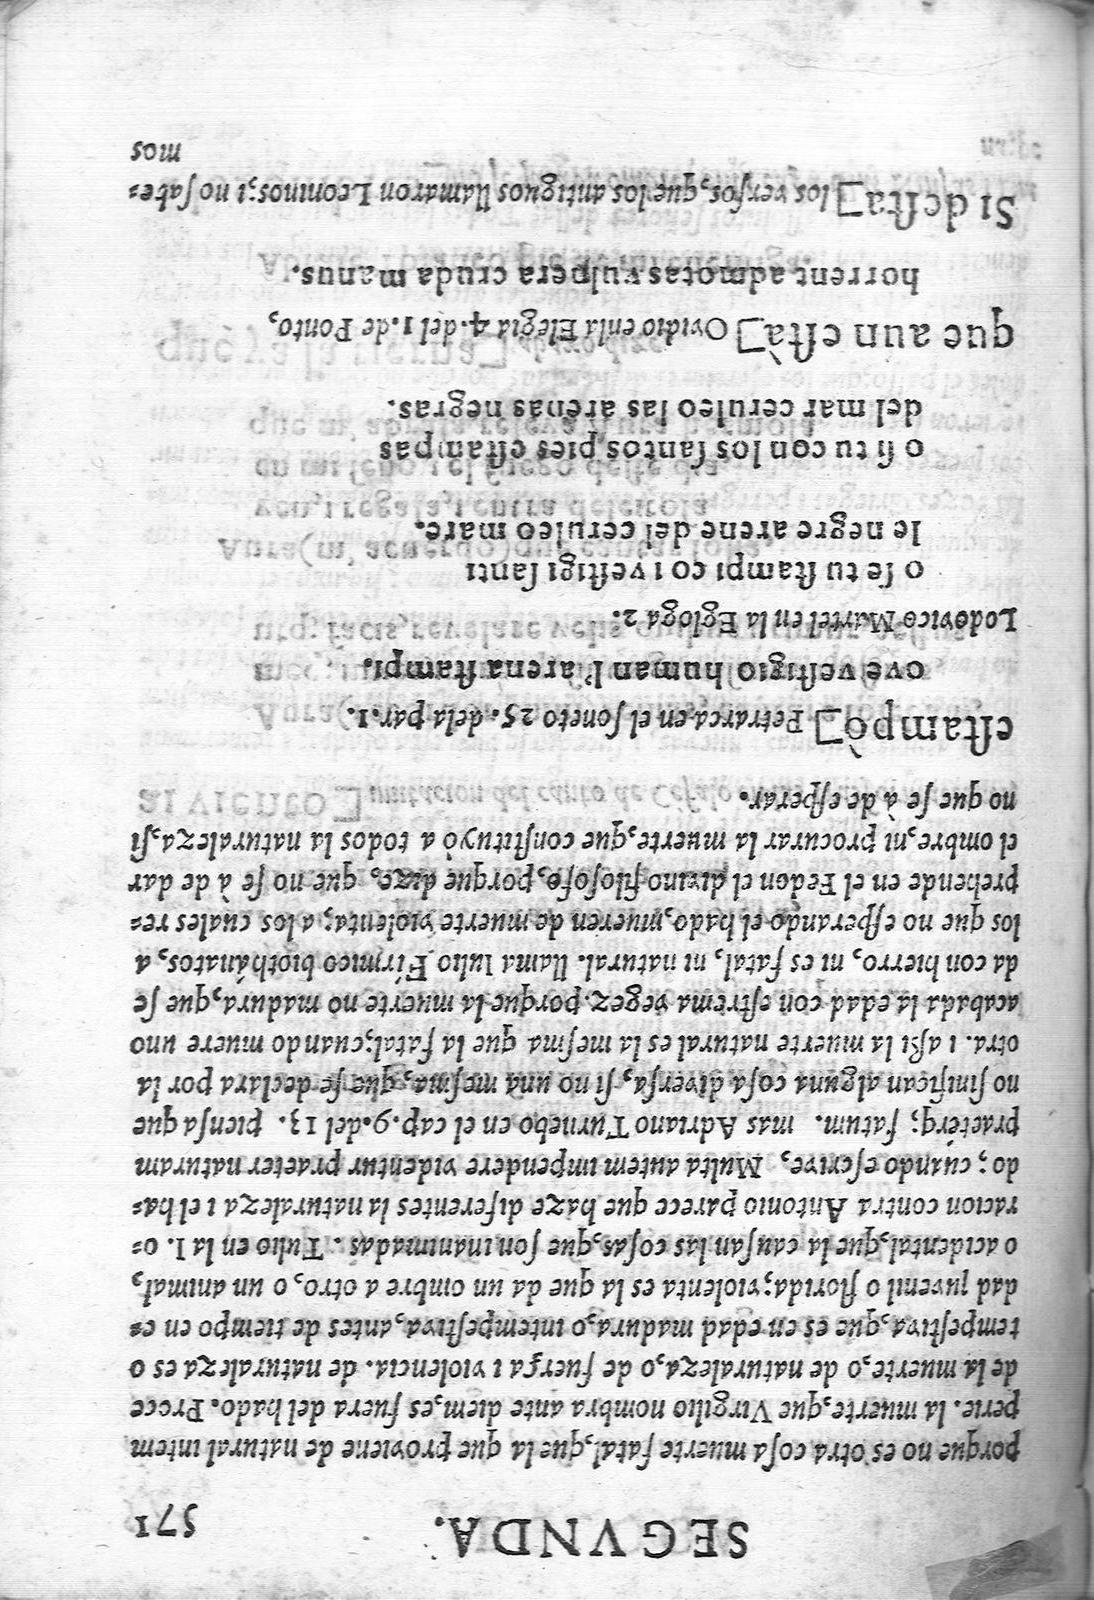 SEGVNDA. 571
porque no es otra cosa muerte fatal, que la que proviene de natural intem
perie. la muerte, que Virgilio nombra ante diem, es fuera del hado. Proce
de la muerte, o de naturaleza, o de fuerça i violencia. de naturaleza es o
tempestiva, que es en edad madura, o intempestiva, antes de tiempo en e=
dad juvenil o florida; violenta es la que da un ombre a otro, o un animal,
o acidental, que la causan las cosas, que son inanimadas. Tulio en la 1. o=
racion contra Antonio parece que haze diferentes la naturaleza i el ha=
do; cuando escrive, Multa autem impendere videntur praeter naturam
praetérq; fatum. mas Adriano Turnebo en el cap. 9. del 13. piensa que
no sinifican alguna cosa diversa, si no una mesma, que se declara por la
otra. i assi la muerte natural es la mesma que la fatal; cuando muere uno
acabada la edad con estrema vegez. porque la muerte no madura, que se
da con hierro, ni es fatal, ni natural. llama Iulio Fírmico biothánatos, a
los que no esperando el hado, mueren de muerte violenta; a los cuales re=
prehende en el Fedon el divino filosofo, porque dize, que no se à de dar
el ombre, ni procurar la muerte, que constituyò a todos la naturaleza, si
no que se à de esperar.
estampò] Petrarca en el soneto 25. de la par. 1.
ove vestigio human l'arena stampi.
Lodovico Martel en la Egloga 2.
o se tu stampi co i vestigi santi
le negre arene del ceruleo mare.
o si tu con los santos pies estampas
del mar ceruleo las arenas negras.
que aun està] Ovidio en la Elegia 4. del 1. de Ponto,
horrent admotas vulnera cruda manus.
Si desta] los versos, que los antiguos llamaron Leoninos; i no sabe=
mos